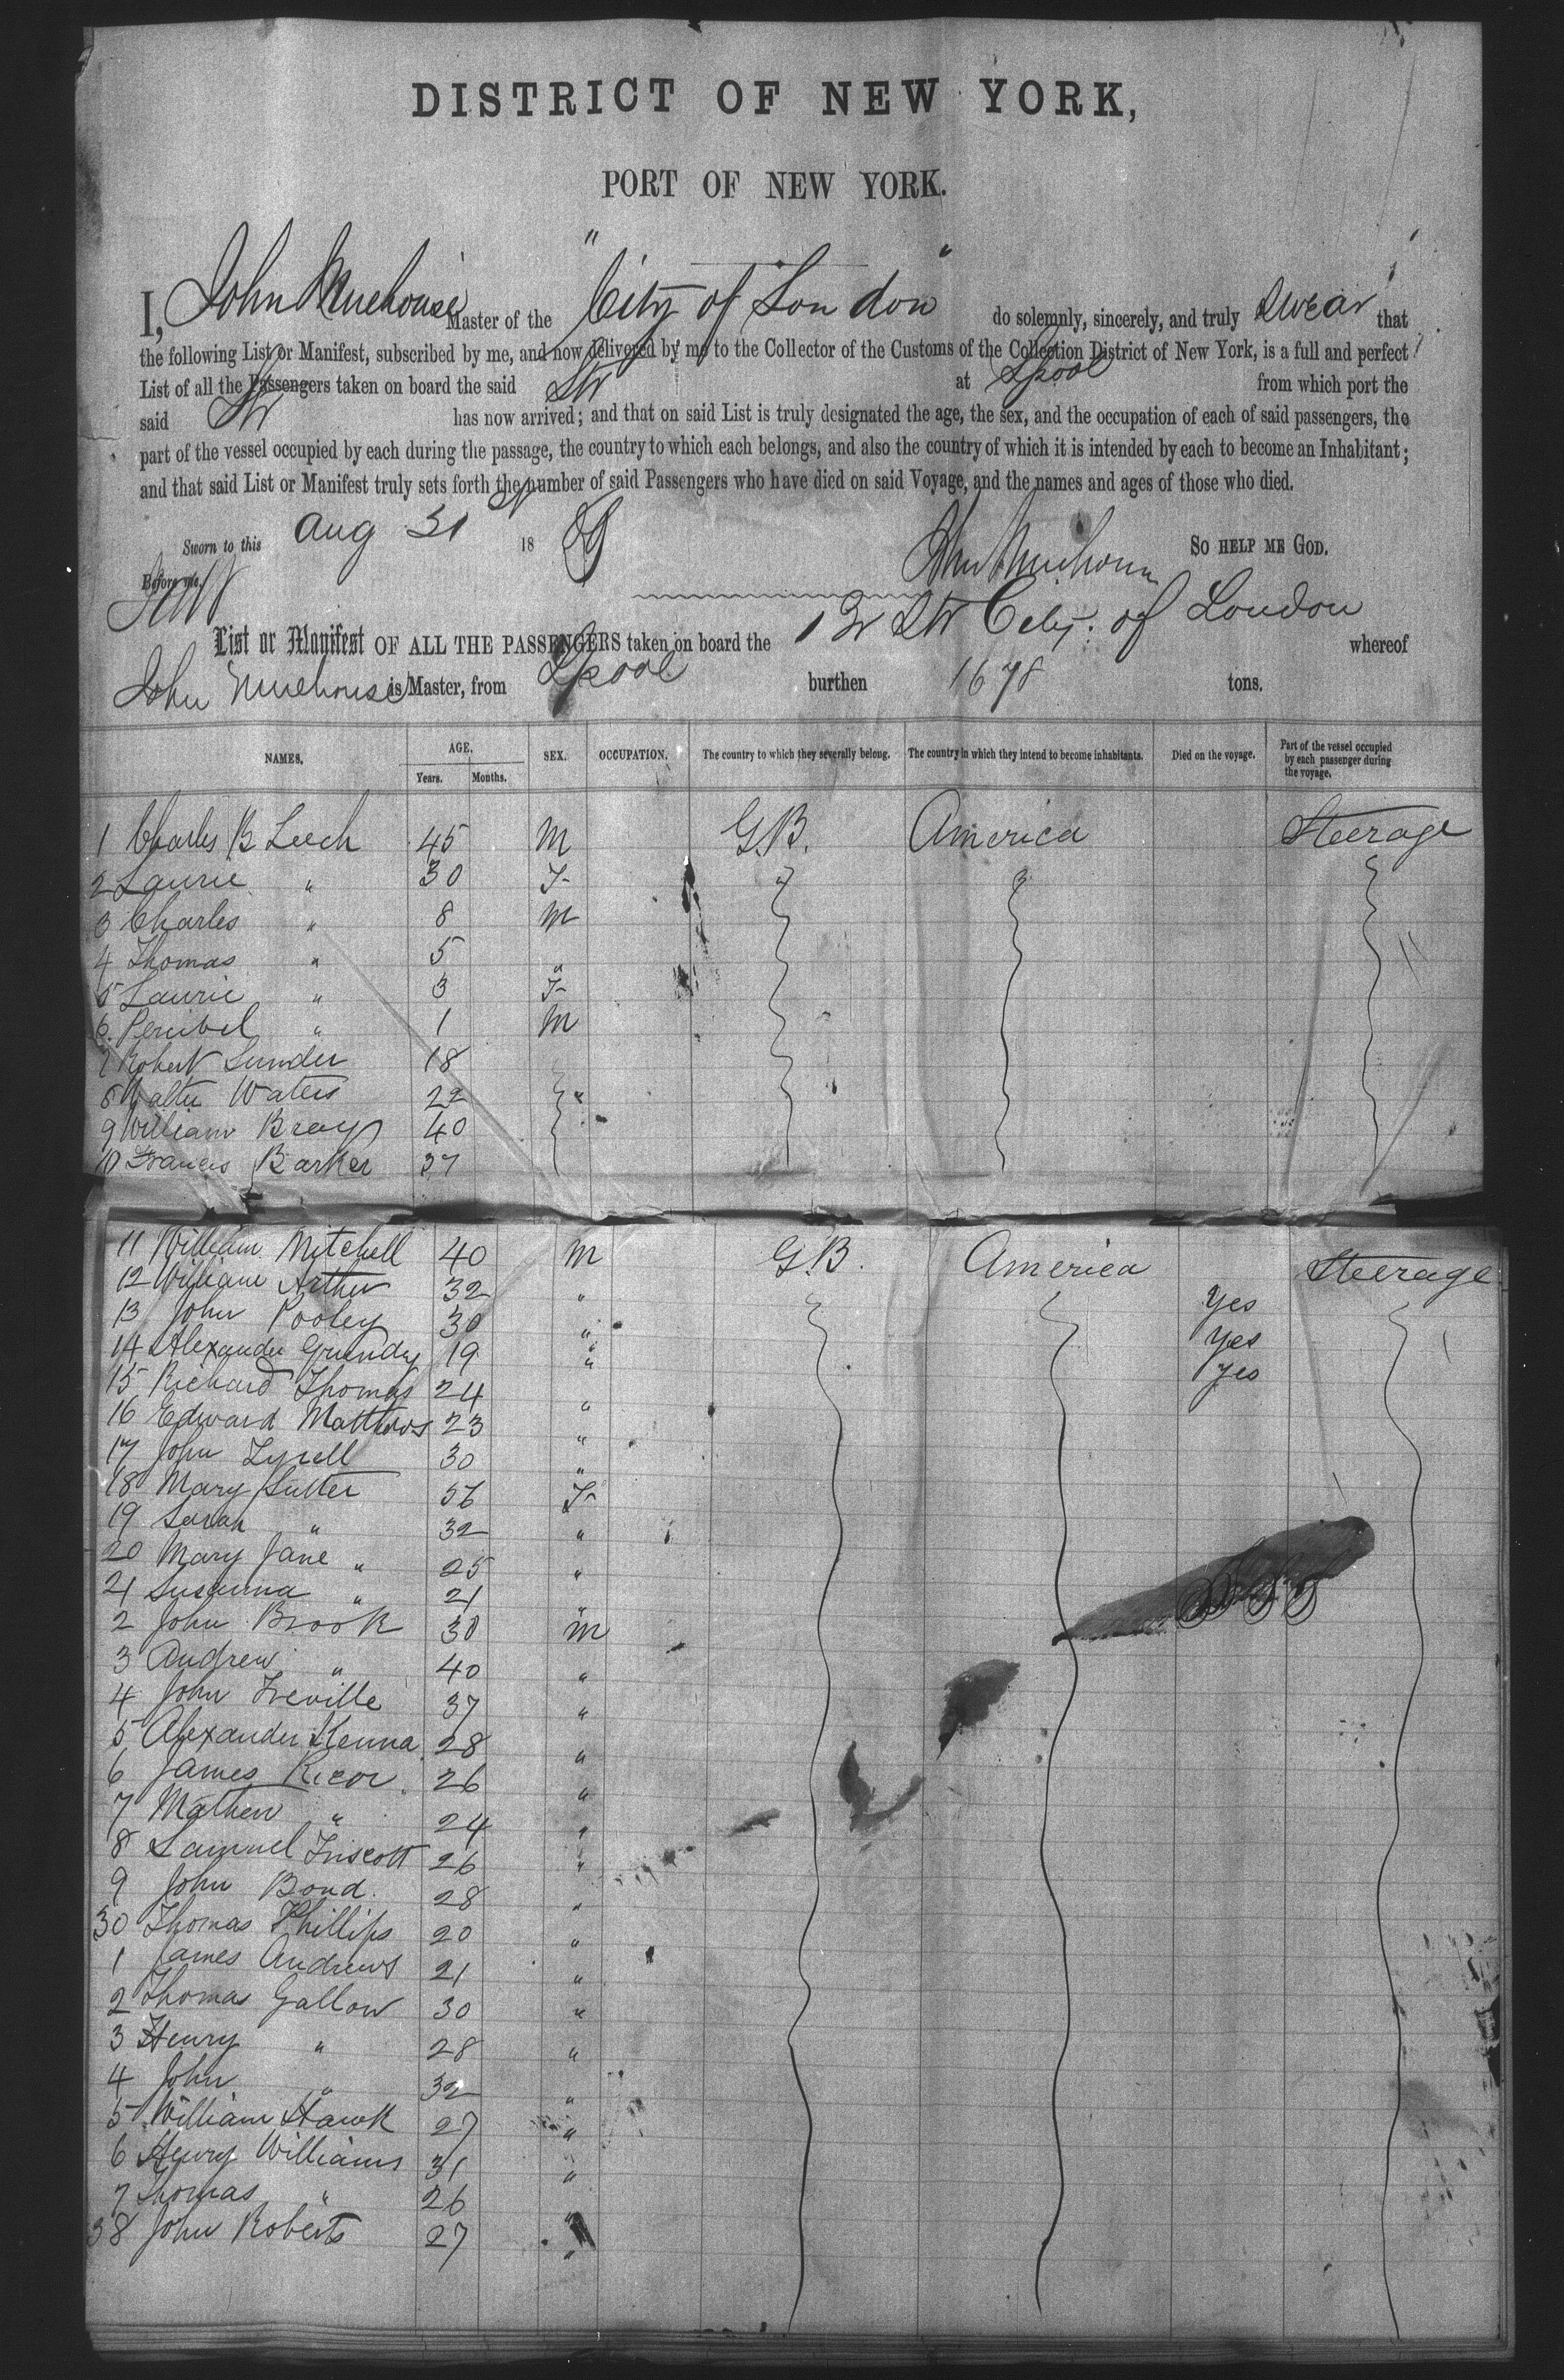 DISTRICT OF NEW YORK,
PORT OF NEW YORK.
I, John Muehouse Master of the "City of London" do solemnly, sincerely, and truly Swear that
the following List or Manifest, subscribed by me, and now delivered by me to the Collector of the Customs of the Collection District of New York, is a full and perfect
List of all the Passengers taken on board the said Str at Lpool from which port the
said Str has now arrived; and that on said List is truly designated the age, the sex, and the occupation of each of said passengers, the
part of the vessel occupied by each during the passage, the country to which each belongs, and also the country of which it is intended by each to become an Inhabitant;
and that said List or Manifest truly sets forth the number of said Passengers who have died on said Voyage, and the names and ages of those who died.
Sworn to this Aug 31 18 So HELP ME GOD.
Before me,
List or Manifest OF ALL THE PASSENGERS taken on board the Str City of London whereof
John Muehouse is Master, from Lpool burthen 1678 tons.
NAMES, AGE, SEX. OCCUPATION. The country to which they severally belong. The country in which they intend to become inhabitants. Died on the voyage. Part of the vessel occupied by each passenger during the voyage.
Years. Months.
1 Charles B Leech 45 M G.B. America Steerage
2 Laurie " 30 F
3 Charles " 8 M
4 Thomas " 5 "
5 Laurie " 3 F
6 " 1 M
7 Robert 18
8 Walter Waters 22 "
9 William Bray 40
10 Francis Barker 37
11 William Mitchell 40 M G.B. America Steerage
12 William Arthur 32 " Yes
13 John Pooley 30 " Yes
14 Alexander Grundy 19 " Yes
15 Richard Thomas 24 "
16 Edward Matthews 23 "
17 John Tyrell 30 "
18 Mary Sutter 56 F
19 Sarah " 32 "
20 Mary Jane " 25 "
21 Susanna " 21 "
2 John Brook 30 M
3 Andrew " 40 "
4 John 37 "
5 Alexander Kenna 28 "
6 James 26 "
7 Mathew " 24 "
8 Samuel Triscott 26 "
9 John Bond 28 "
30 Thomas Phillips 20 "
1 James Andrews 21 "
2 Thomas Gallow 30 "
3 Henry " 28 "
4 John " 32 "
5 William Hawk 27 "
6 Henry Williams 31 "
7 Thomas " 26 "
38 John Roberts 27 "